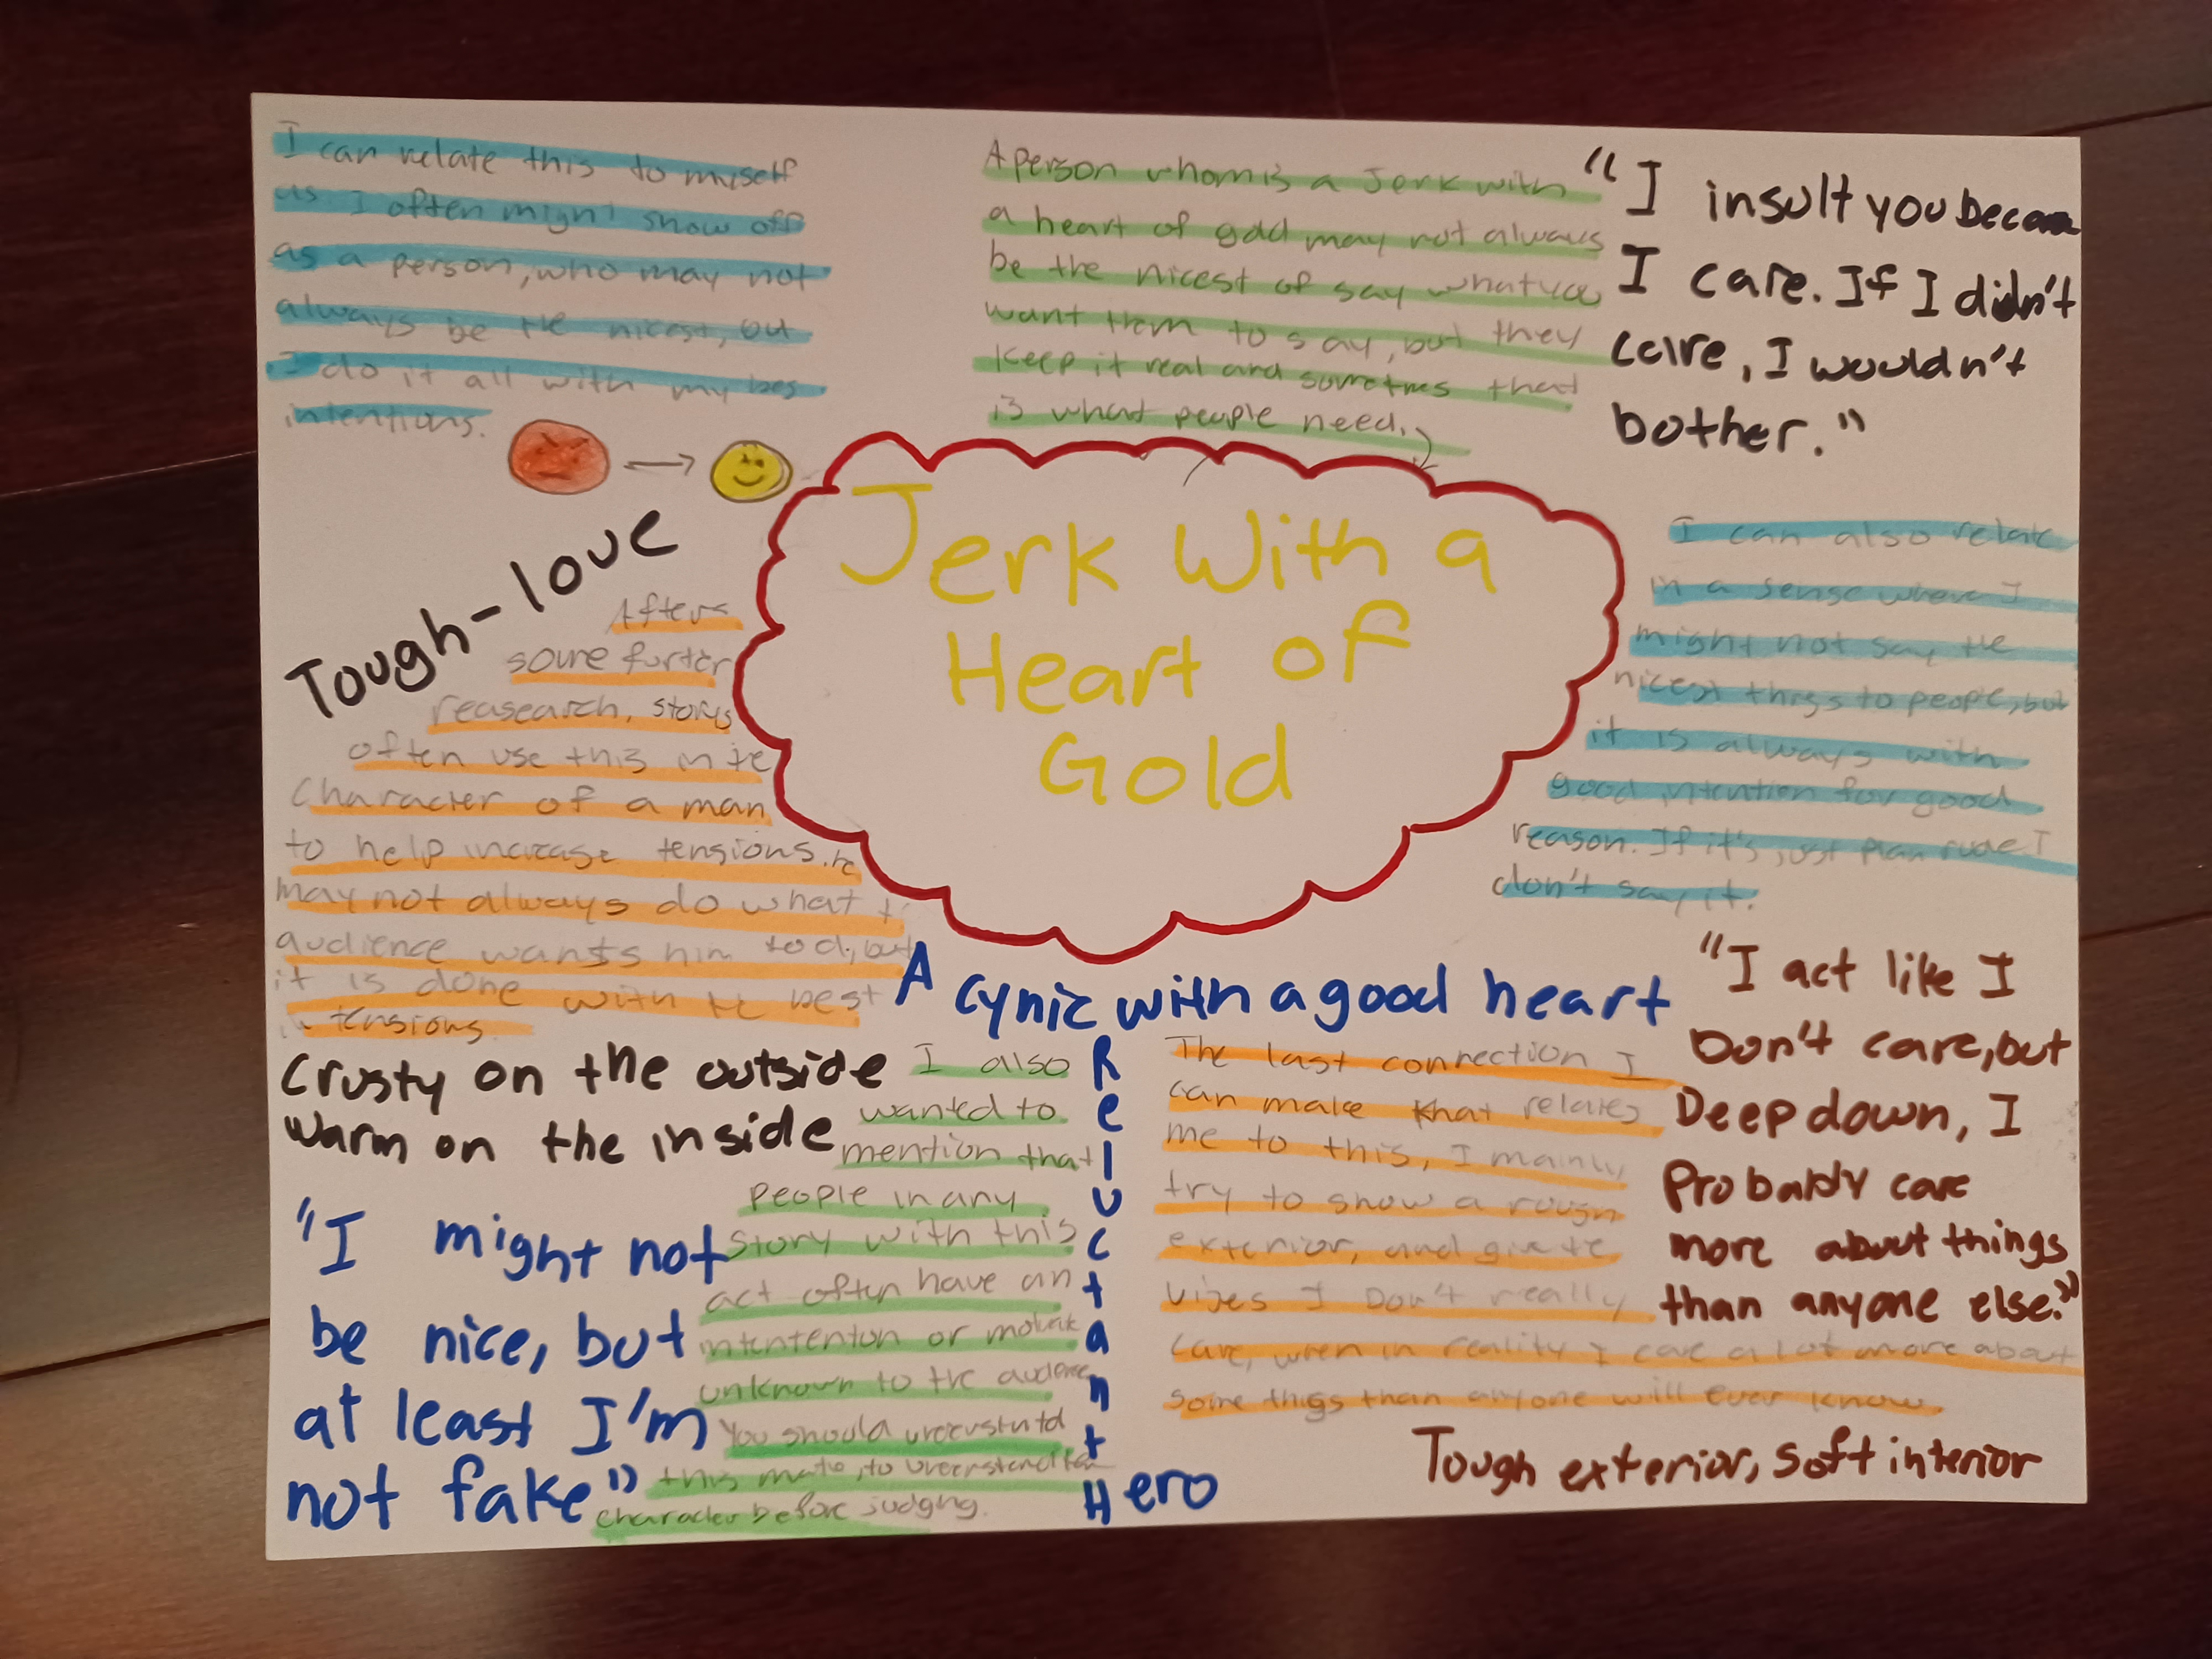 I can relate this to myself
as I often might show off
as a person, who may not
always be the nicest, but
I do it all with my bes
intentions.
A person whom is a Jerk with
a heart of gold may not always
be the nicest of say whatyou
want them to say, but they
keep it real and sometimes that
is what people need.
"I insult you because
I care. If I didn't
care, I wouldn't
bother."
Jerk With a
Heart of
Gold
Tough-love
After
some furter
reasearch, storys
often use this in te
Character of a man
to help increase tensions. he
may not always do what t
audience wants him to d, but
it is done with te best
in tensions.
I can also relate
in a sense where I
might not say the
nicest things to people, but
it is always with
good intention for good
reason. If it's just plan rude I
don't say it.
A cynic with a good heart
Crusty on the outside
Warm on the inside
"I might not
be nice, but
at least I'm
not fake"
I also
wanted to
mention that
people in any
story with this
act often have an
intententon or
unknown to the audience
You should
this
character before judging.
Reluctant Hero
The last connection I
can make that relates
me to this, I mainly
try to show a rough
exterior, and give te
vibes I Don't really
care, when in reality I care a lot more about
some things than anyone will ever know.
"I act like I
Don't care, but
Deep down, I
Probably care
more about things
than anyone else."
Tough exterior, soft interior